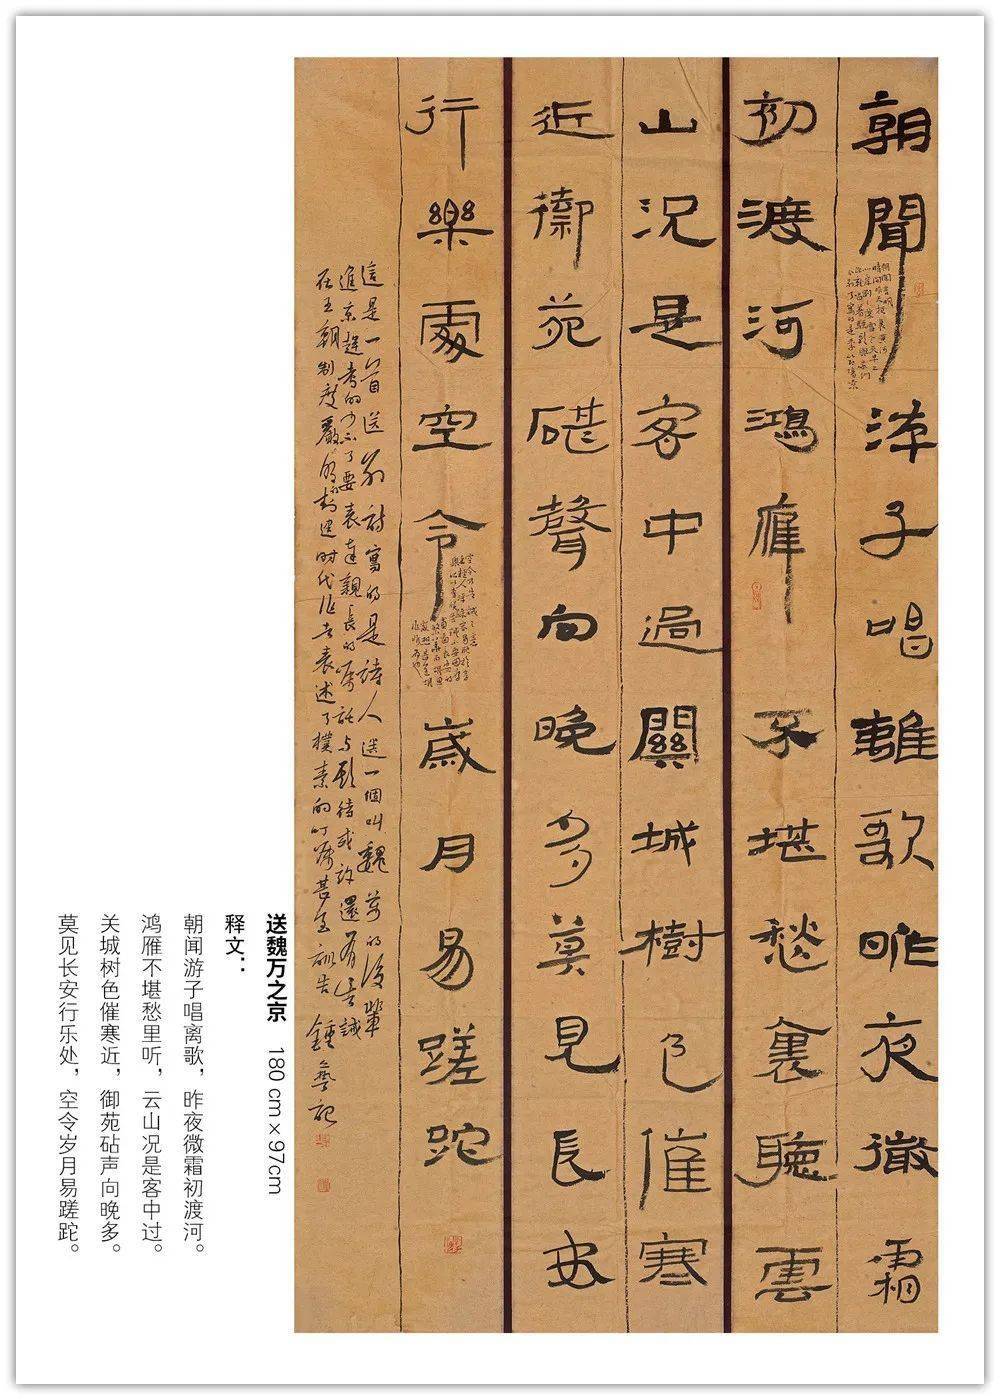 朝聞游子唱離歌昨夜微霜
初渡河鴻雁不堪愁裏聽雲
山況是客中過關城樹色催寒
近御苑砧聲向晚多莫見長安
行樂處空令歲月易蹉跎
這是一首送別詩寫的是詩人送一個叫魏萬的後輩
進京趕考的少不了要表達親長的囑託与期待或許還有告誡
在王朝制度嚴的封建時代作者表述了樸素的叮囑甚至訓告 鍾 記
送魏万之京 180 cm×97cm
释文：
朝闻游子唱离歌，昨夜微霜初渡河。
鸿雁不堪愁里听，云山况是客中过。
关城树色催寒近，御苑砧声向晚多。
莫见长安行乐处，空令岁月易蹉跎。